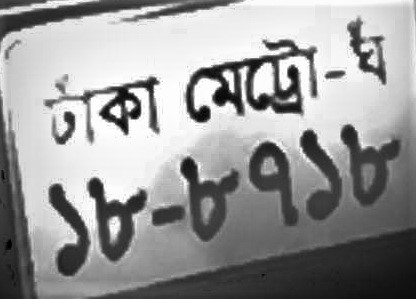 ঢাকা মেট্রো-ঘ
১৮-৮৭১৮